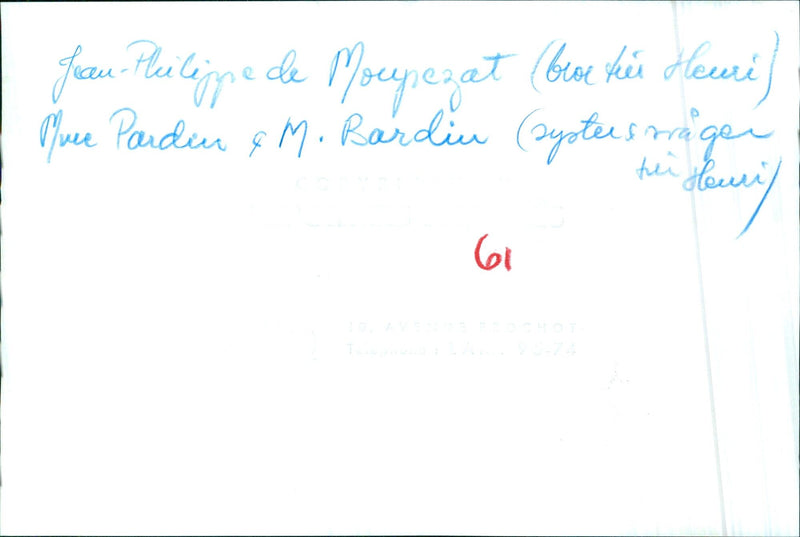 Jean-Philippe de Monpezat (bror till Henri)
Mme Pardin & M. Bardin (syster & svåger
till Henri)
61
COPYRIGHT
10, AVENUE FROCHOT
Téléphone : 96-74